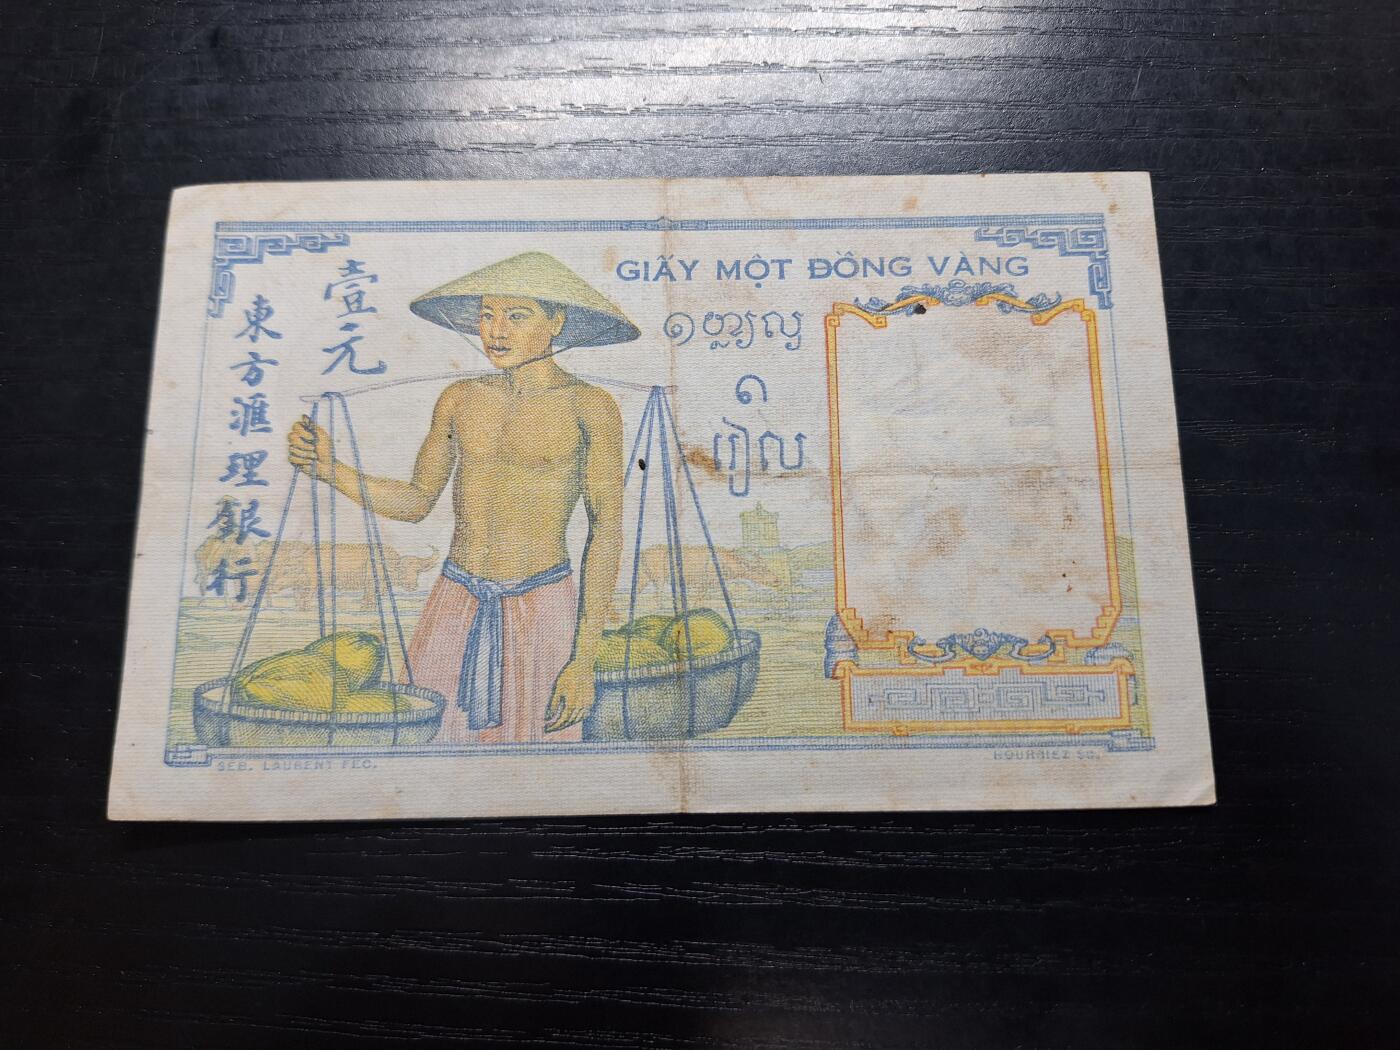 壹元
東方滙理銀行
GIẤY MỘT ĐỒNG VÀNG
១
រៀល
SEB. LAURENT FEC.
BOURRIEZ SC.